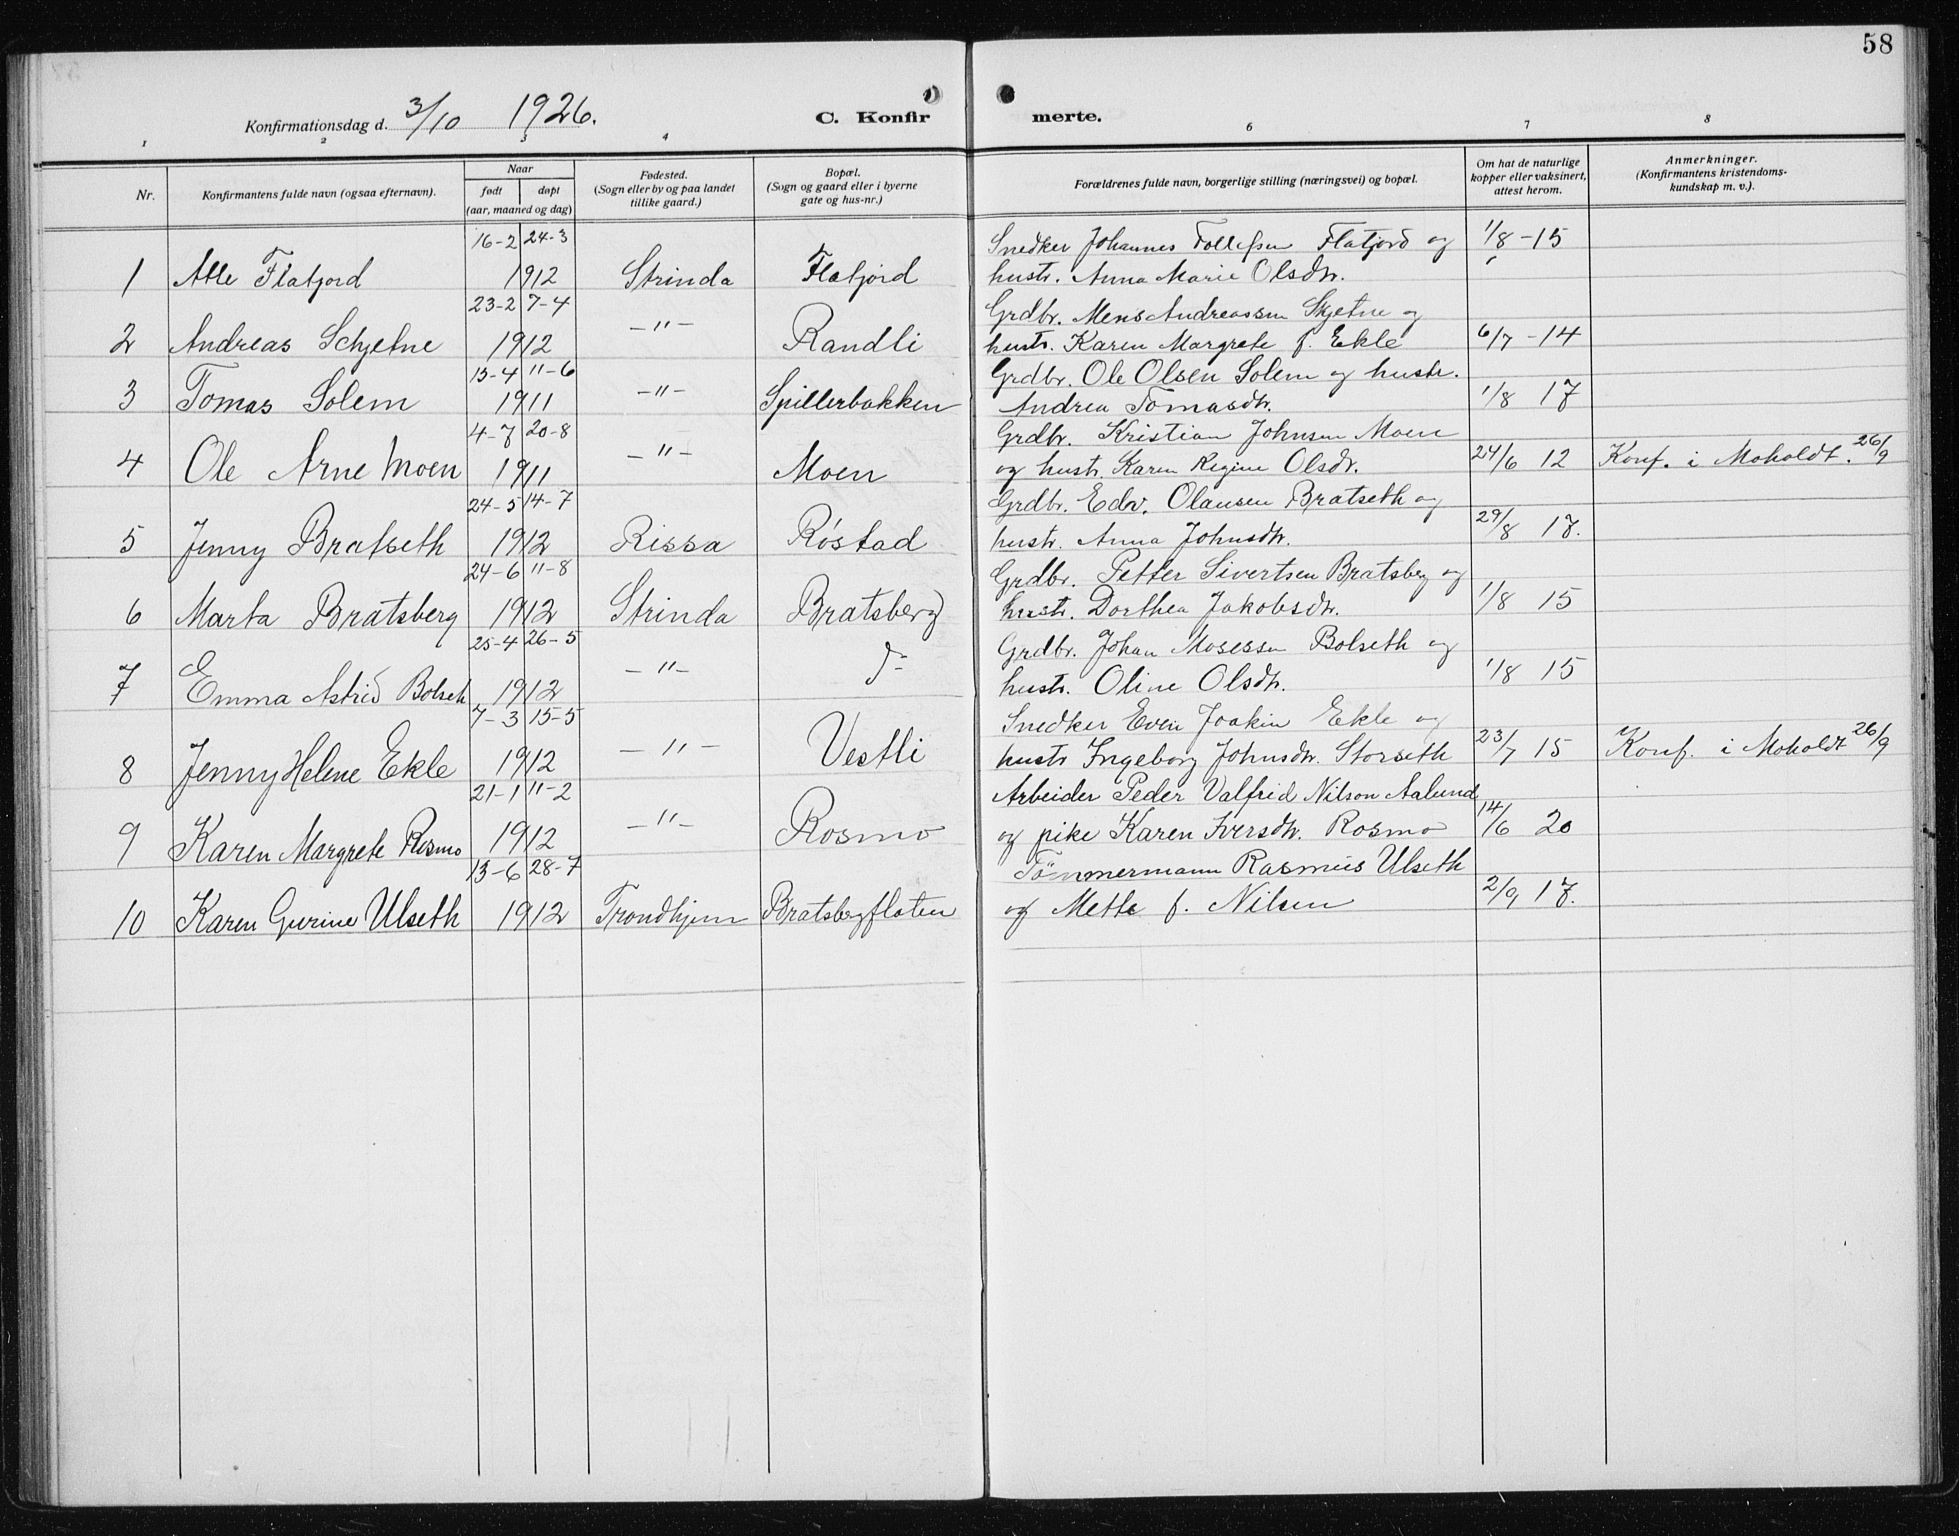 58
Konfirmationsdag d. 3/10 1926. C. Konfirmerte.
1 2 3 4 6 7 8
Nr. Konfirmantens fulde navn (ogsaa efternavn). Naar født døpt (aar, maaned og dag) Fødested. (Sogn eller by og paa landet tillike gaard.) Bopæl. (Sogn og gaard eller i byerne gate og hus-nr.) Forældrenes fulde navn, borgerlige stilling (næringsvei) og bopæl. Om hat de naturlige kopper eller vaksinert, attest herom. Anmerkninger. (Konfirmantens kristendomskundskap m. v.).
16-2 24-3 Snedker Johannes Flatjord og 1/8 - 15
1 Atle Flatjord 1912 Strinda Flatjord hustr. Anna Marie Olsdtr.
23-2 7-4 Grdbr. Mens Andreassen Skjetne og
2 Andreas Schjetne 1912 -"- Randli hustr. Karen Margrete f. Ekle 6/7 - 14
13-4 11-6 Grdbr. Ole Olsen Solem og hustr.
3 Tomas Solem 1911 -"- Spillerbakken Andrea Tomasdtr. 1/8 17
4-7 20-8 Grdbr. Kristian Johnsen Moen
4 Ole Arne Moen 1911 -"- Moen og hustr. Karen Regine Olsdr. 24/6 12 Konf. i Moholdt. 26/9
24-5 14-7 Grdbr. Edv. Olausen Bratseth og
5 Jenny Bratseth 1912 Rissa Røstad hustr. Anna Johnsdtr. 29/8 17.
24-6 11-8 Grdbr. Petter Sivertsen Bratsberg og
6 Marta Bratsberg 1912 Strinda Bratsberg hustr. Dorthea Jakobsdtr. 1/8 15
25-4 26-5 Grdbr. Johan Mosessen Bolseth og
7 Emma Astrid Bolseth 1912 -"- hustr. Oline Olsdtr. 1/8 15
7-3 15-5 Snedker Even Joakin Ekle og
8 Jenny Helene Ekle 1912 -"- Vestli hustr Ingeborg Johnsdtr. Storseth 23/7 15 Konf. i Moholdt 26/9
21-1 11-2 Arbeider Peder Valfrid Nilson Aalund
9 Karen Margrete Rosmo 1912 -"- Rosmo og pike Karen Iversdtr. Rosmo 14/6 20
13-6 28-7 Tömmermann Rasmus Ulseth
10 Karen Gurine Ulseth 1912 Trondhjem Bratsbergfloten og Mette f. Nilsen 2/9 17.